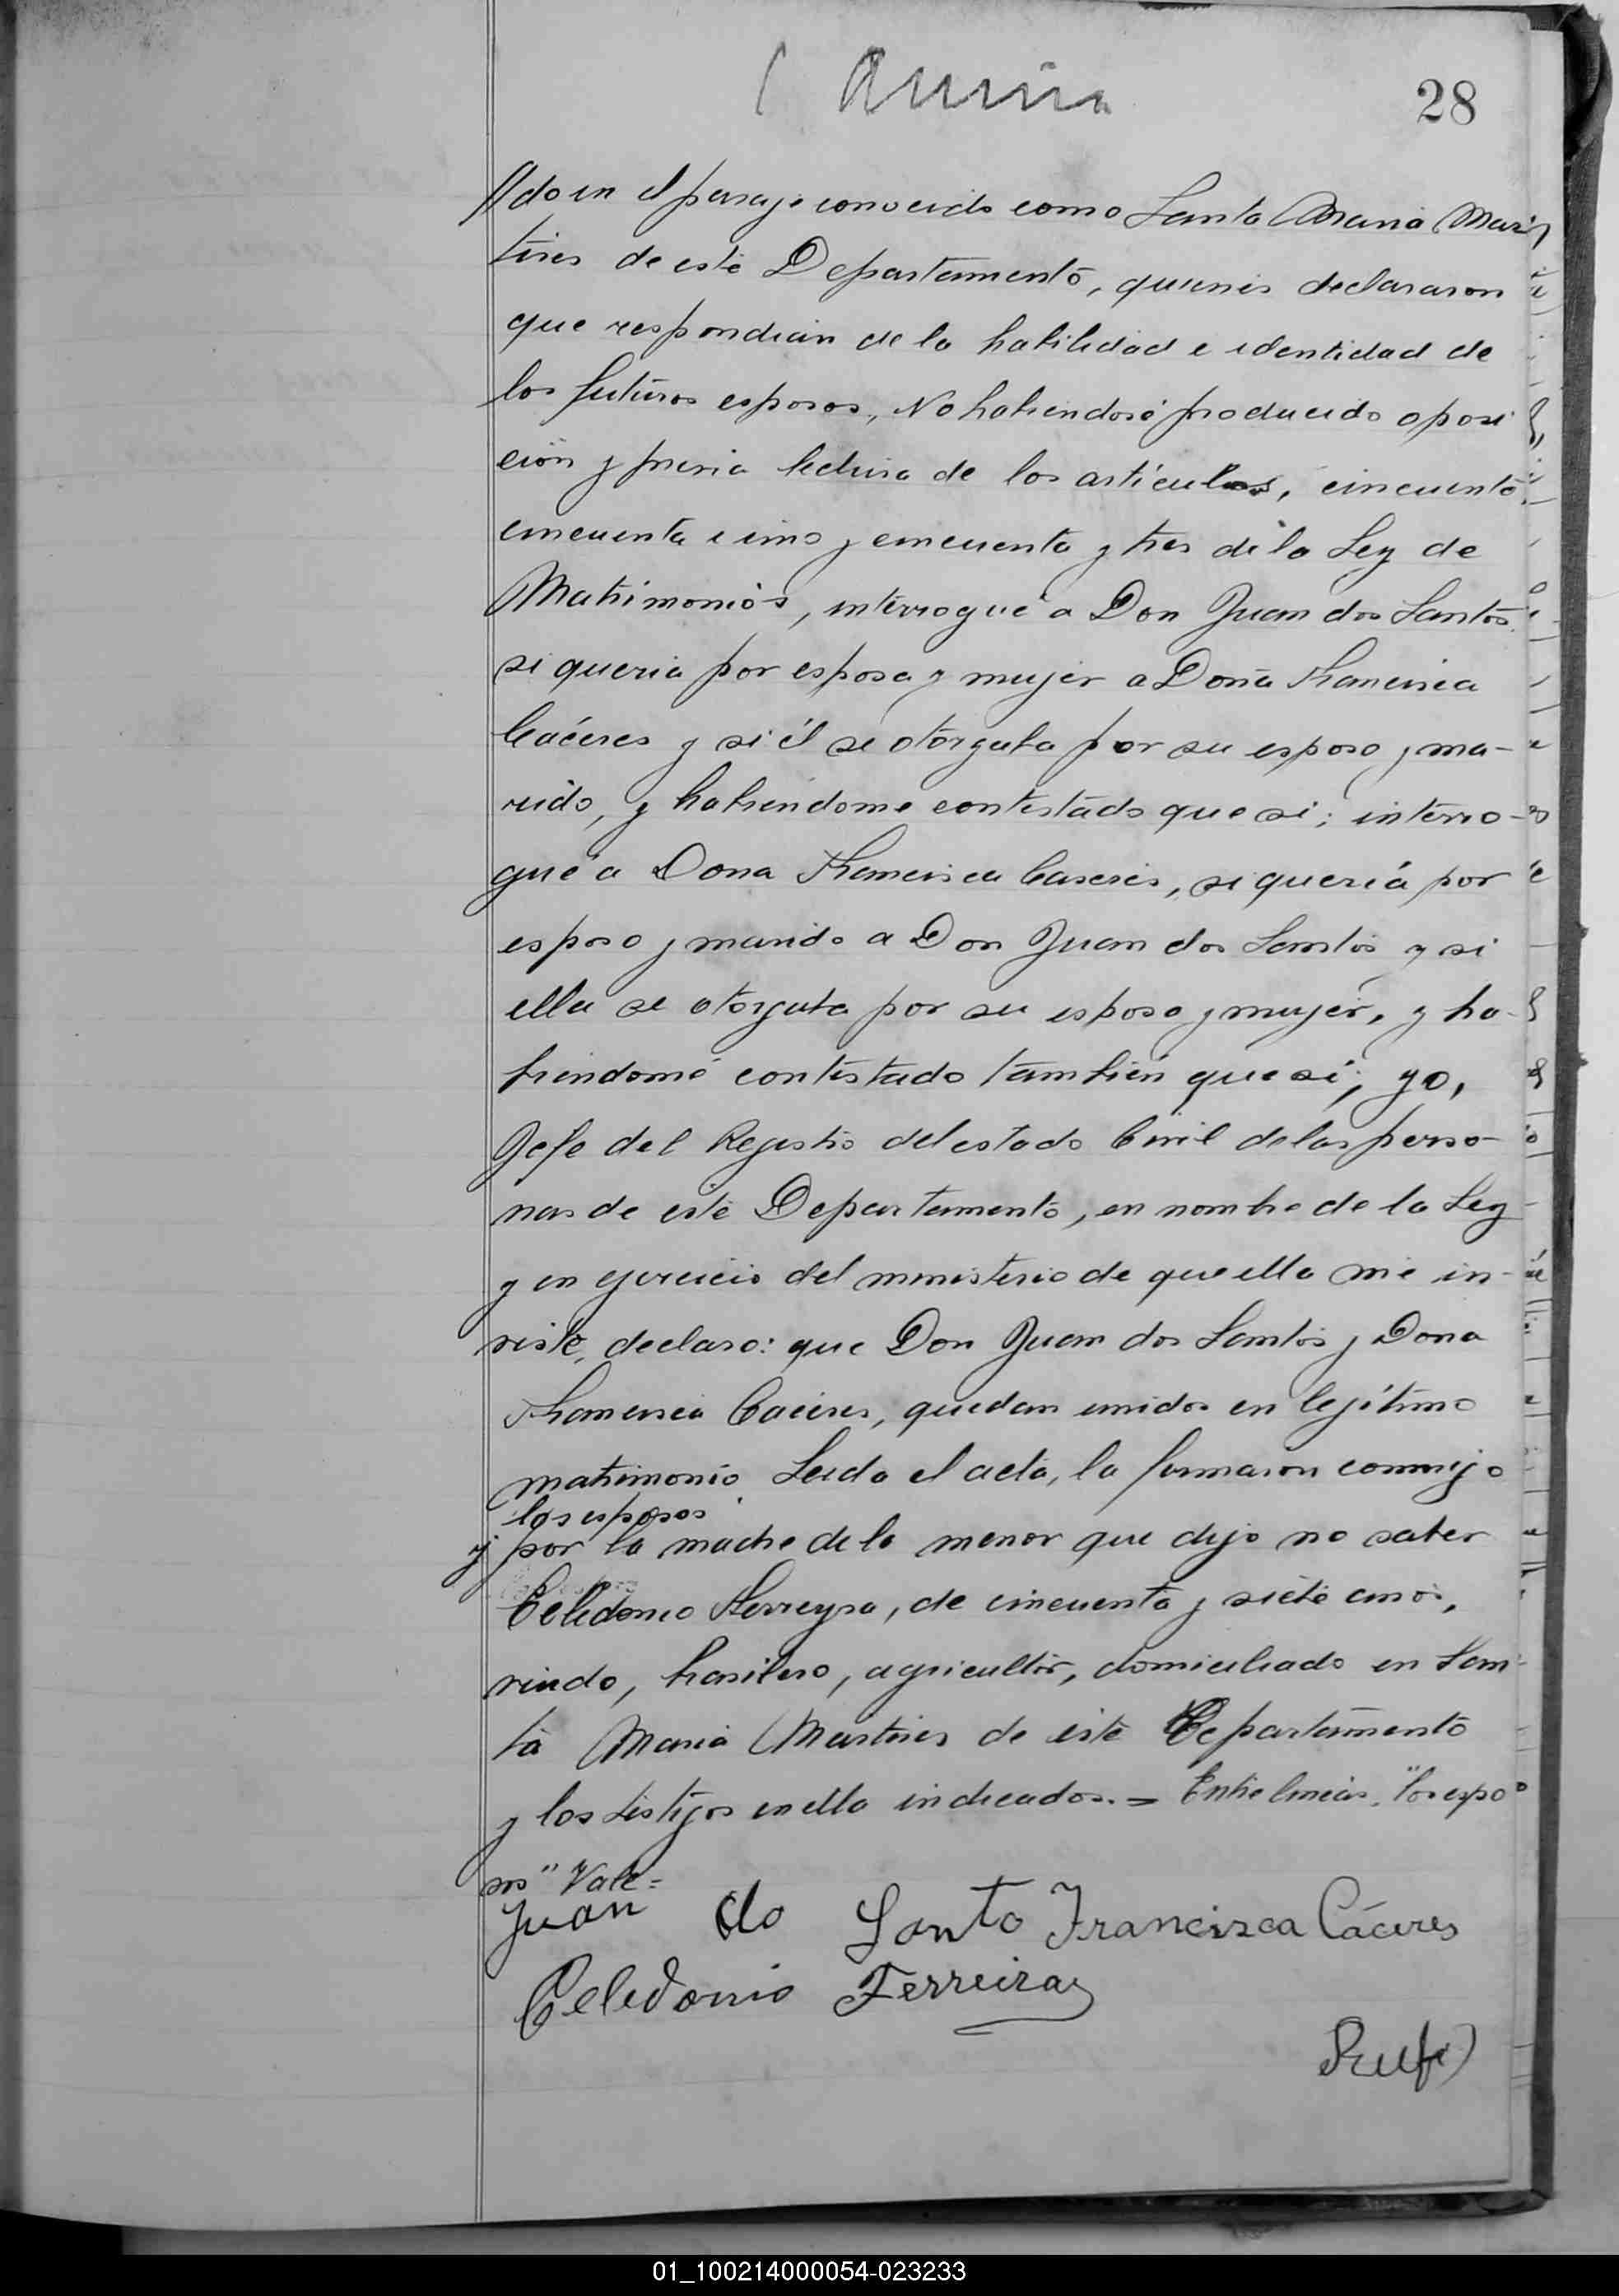 28
do en el paraje conocido como Santa Maria Mar
tires de este Departamento, quienes declararon
que respondian de la habilidad e identidad de
los futuros esposos, No habiendose producido oposi
ción y previa lectura de los artículos, cincuenta
cincuenta i uno y cincuenta y tres de la Ley de
Matrimonios, interrogué a Don Juan dos Santos
si queria por esposa y mujer a Doña Francisca
Cáceres y si él se otorgaba por su esposo y ma-
rido, y habiendome contestado que si; interro-
gué a Dona Francisca Caseres, si quería por
esposo y marido a Don Juan dos Santos y si
ella se otorgaba por su esposa y mujer, y ha-
biendome contestado tambien que si; yo,
Jefe del Registro del estado Civil de las perso-
nas de este Departamento, en nombre de la Ley
y en ejercicio del ministerio de que ella me in-
viste, declaro: que Don Juan dos Santos y Dona
Francisca Caceres, quedan unidos en lejítimo
matrimonio. Leida el acta, la firmaron conmigo
los esposos
y por la madre de la menor que dijo no saber
Celedonio Ferreyra, de cincuenta y siete anos,
viudo, brasilero, agricultor, domiciliado en San
ta Maria Martires de este Departamento
y los testigos en ella indicados. = Entre lineas, "los espo
sos" Vale =
Juan do Santo Francisca Cáceres
Celedonio Ferreira
Rufi
01_100214000054-023233